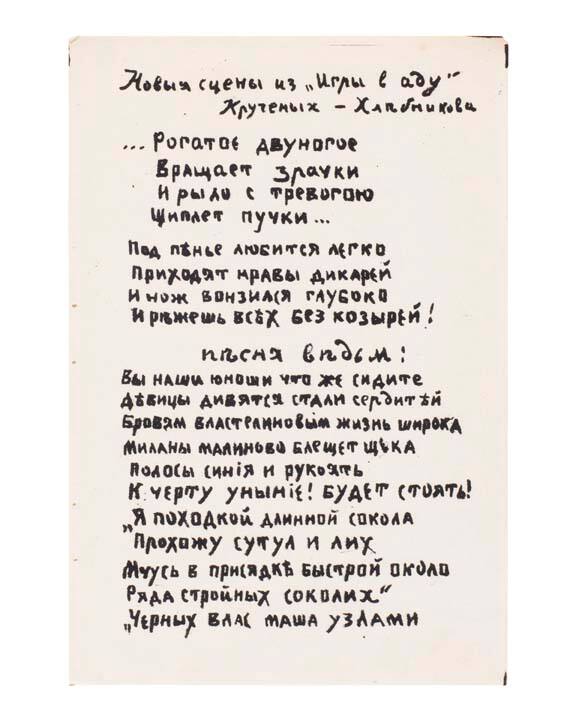 Новыя сцены из „Игры в аду"
Крученых – Хлѣбникова
...Рогатое двуногое
Вращает зрачки
И рыло с тревогою
Щиплет пучки...
Под пѣнье любится легко
Приходят нравы дикарей
И нож вонзился глубоко
И рѣжешь всѣх без козырей!
пѣсня вѣдьм:
Вы наши юноши что же сидите
Дѣвицы дивятся стали сердитѣй
Бровям властелиновым жизнь широка
Миланы малиново блещет щѣка
Полосы синія и рукоять
К черту уныніе! Будет стоять!
„Я походкой длинной сокола
Прохожу сутул и лих
Мчусь в присядкѣ быстрой около
Ряда стройных соколих"
„Черных влас маша узлами